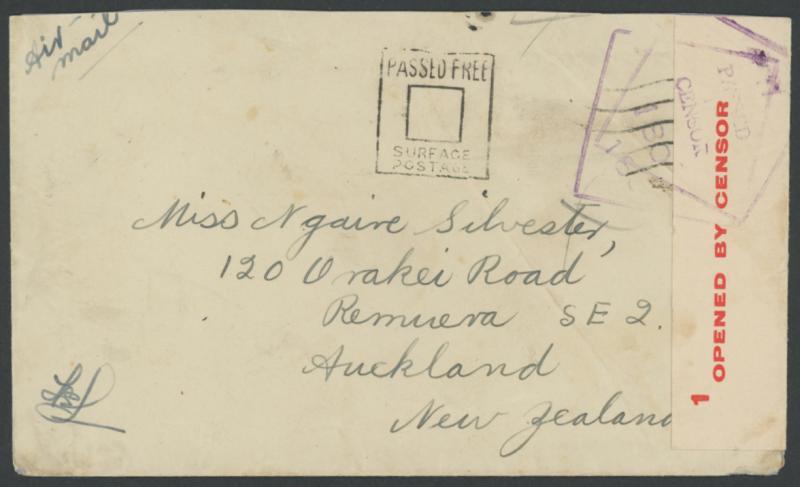 Air
mail
PASSED FREE
SURFACE
POSTAGE
PASSED
CENSOR
Miss Ngaire Silvester,
120 Orakei Road
Remuera SE 2.
Auckland
New Zealand
1 OPENED BY CENSOR